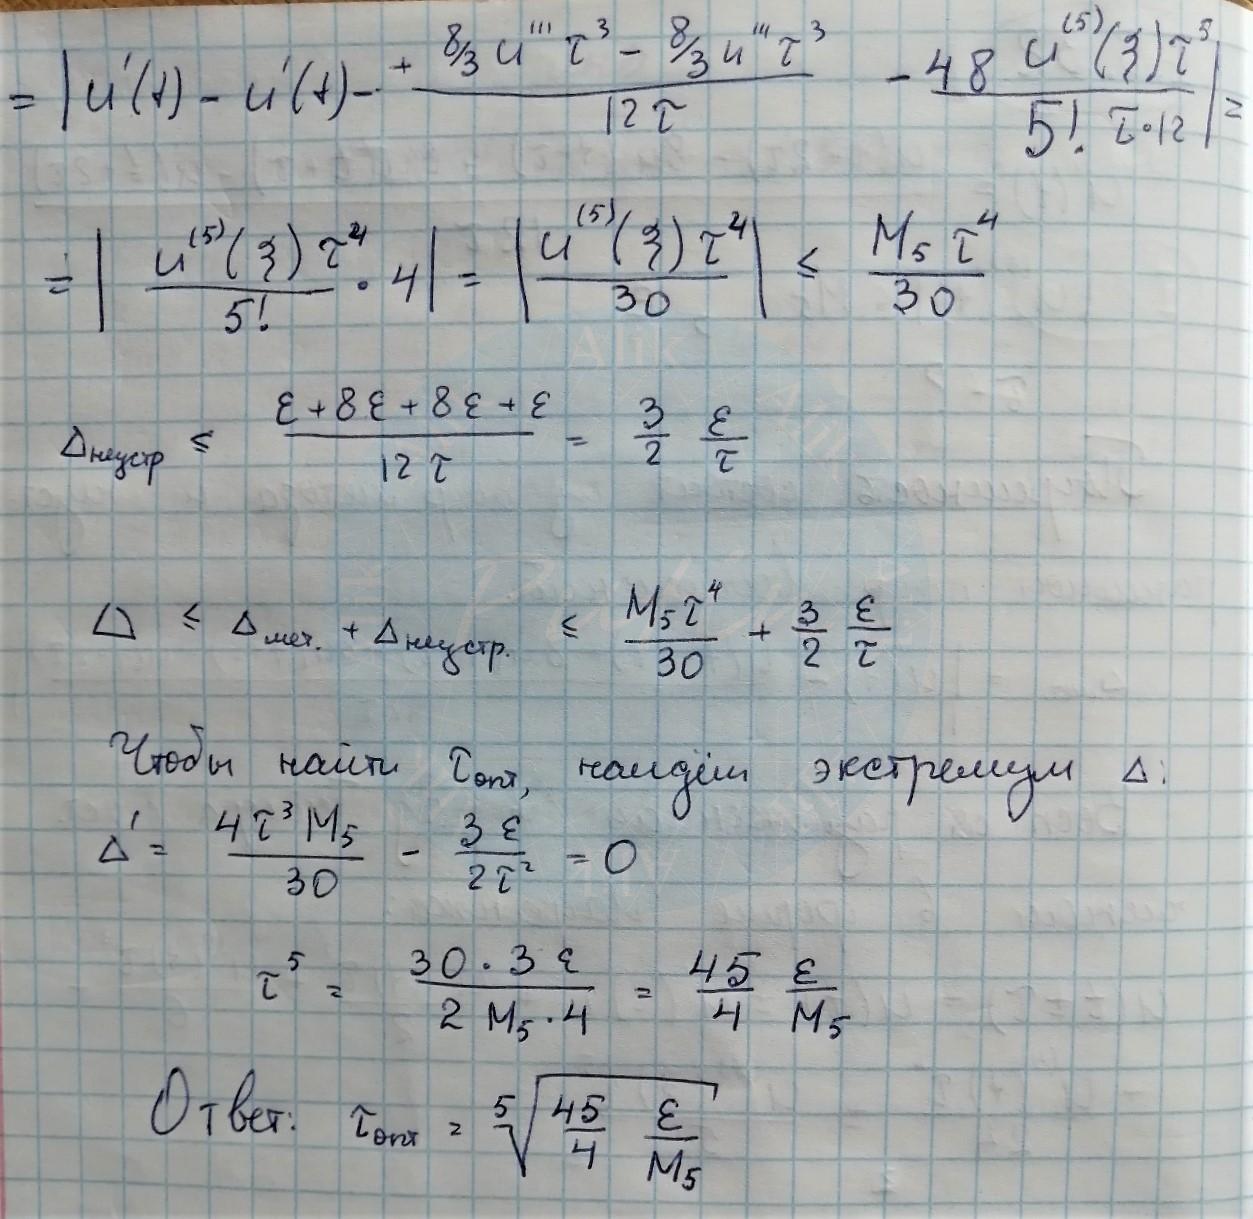 = | u'(t) - u'(t) - + (8/3 u''' τ³ - 8/3 u''' τ³) / (12 τ) - 48 u⁽⁵⁾(ξ) τ⁵ / (5! τ·12) | =
= | u⁽⁵⁾(ξ) τ⁴ / 5! · 4 | = | u⁽⁵⁾(ξ) τ⁴ / 30 | ≤ M₅ τ⁴ / 30
Δнеустр ≤ (ε + 8ε + 8ε + ε) / (12 τ) = 3/2 ε/τ
Δ ≤ Δмет. + Δнеустр. ≤ M₅τ⁴ / 30 + 3/2 ε/τ
Чтобы найти τопт, найдём экстремум Δ:
Δ' = 4τ³M₅ / 30 - 3ε / 2τ² = 0
τ⁵ = 30·3ε / (2 M₅·4) = 45/4 ε/M₅
Ответ: τопт = ⁵√(45/4 ε/M₅)